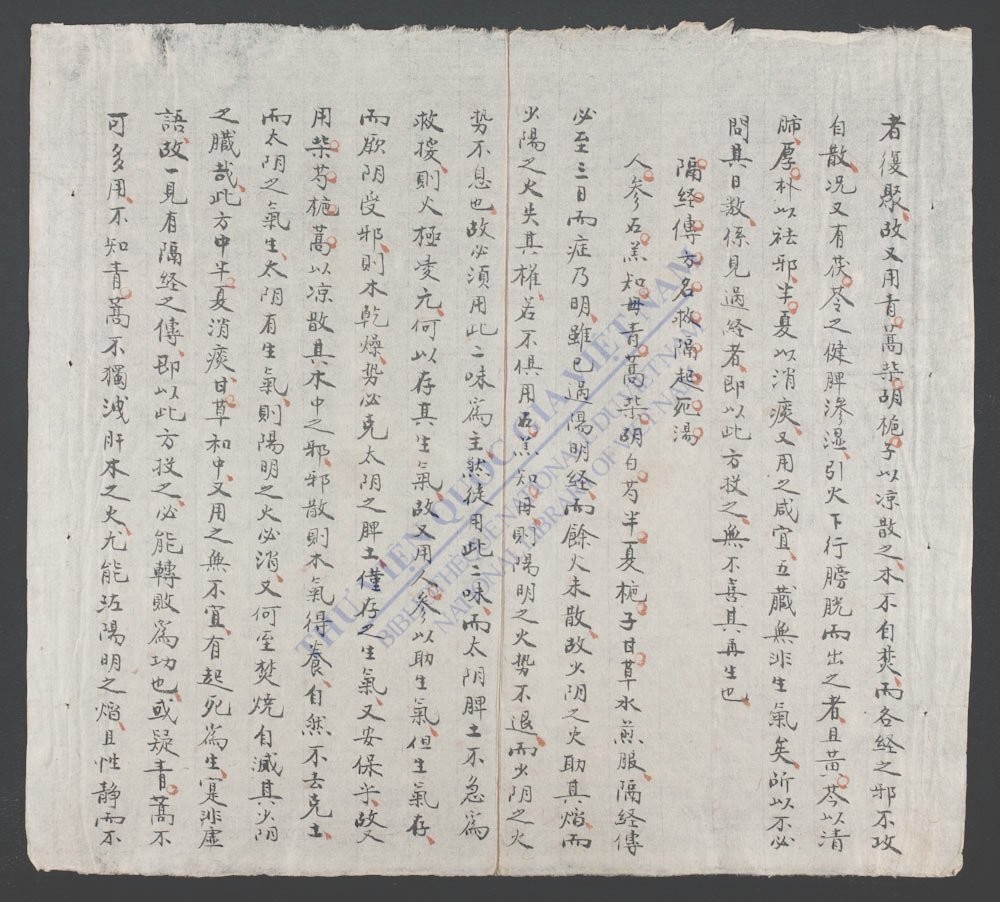 者復聚、故又用青蒿柴胡梔子以凉散之、木不自焚、而各経之邪不攻
自散、况又有茯苓之健脾滲湿、引火下行膀胱而出之者、且黄芩以清
肺、厚朴以祛邪、半夏以消痰、又用之咸宜、五臓無非生氣矣、所以不必
問其日数、係見過経者、即以此方投之、無不喜其再生也、
隔経傳方名救隔起死湯
人參石羔知毋青蒿柴胡白芍半夏梔子甘草水煎服隔経傳
必至三日而症乃明、雖已過陽明経、而餘火未散、故少阴之火助其焰、而
少陽之火失其権、若不俱用石羔知毋、則陽明之火势不退、而少阴之火
势不息也、故必須用此二味為主、然徒用此二味、而太阴脾土不急為
救援、則火極凌亢、何以存其生氣、故又用人參以助生氣、但生氣存、
而厥阴受邪、則木乾燥、势必克太阴之脾土、僅存之生氣、又安保乎、故又
用柴芍梔蒿以凉散其木中之邪、邪散則木氣得養、自然不去克土、
而太阴之氣生、太阴有生氣、則陽明之火必消、又何至焚焼自滅其少阴
之臓哉、此方中半夏消痰、甘草和中、又用之無不宜、有起死為生、寔非虚
語、故一見有隔経之傳、即以此方投之、必能轉敗為功也、或疑青蒿不
可多用、不知青蒿不獨洩肝木之火、尤能泻陽明之焰、且性静而不
THƯ VIỆN QUỐC GIA VIỆT NAM
BIBLIOTHÈQUE NATIONALE DU VIETNAM
NATIONAL LIBRARY OF VIETNAM